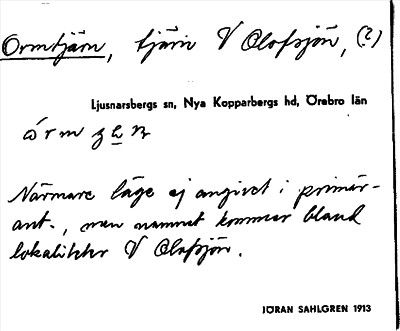 Ormtjärn, tjärn V Olofsjön, (?)
Ljusnarsbergs sn, Nya Kopparbergs hd, Örebro län
Närmare läge ej angivet i primär-
ant., men namnet kommer bland
lokaliteter V Olofsjön.
JÖRAN SAHLGREN 1913